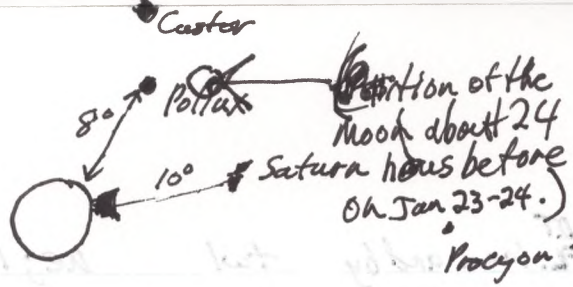 Castor
Pollux
Position of the
Moon about 24
hours before
on Jan 23-24.)
8°
10°
Saturn
Procyon